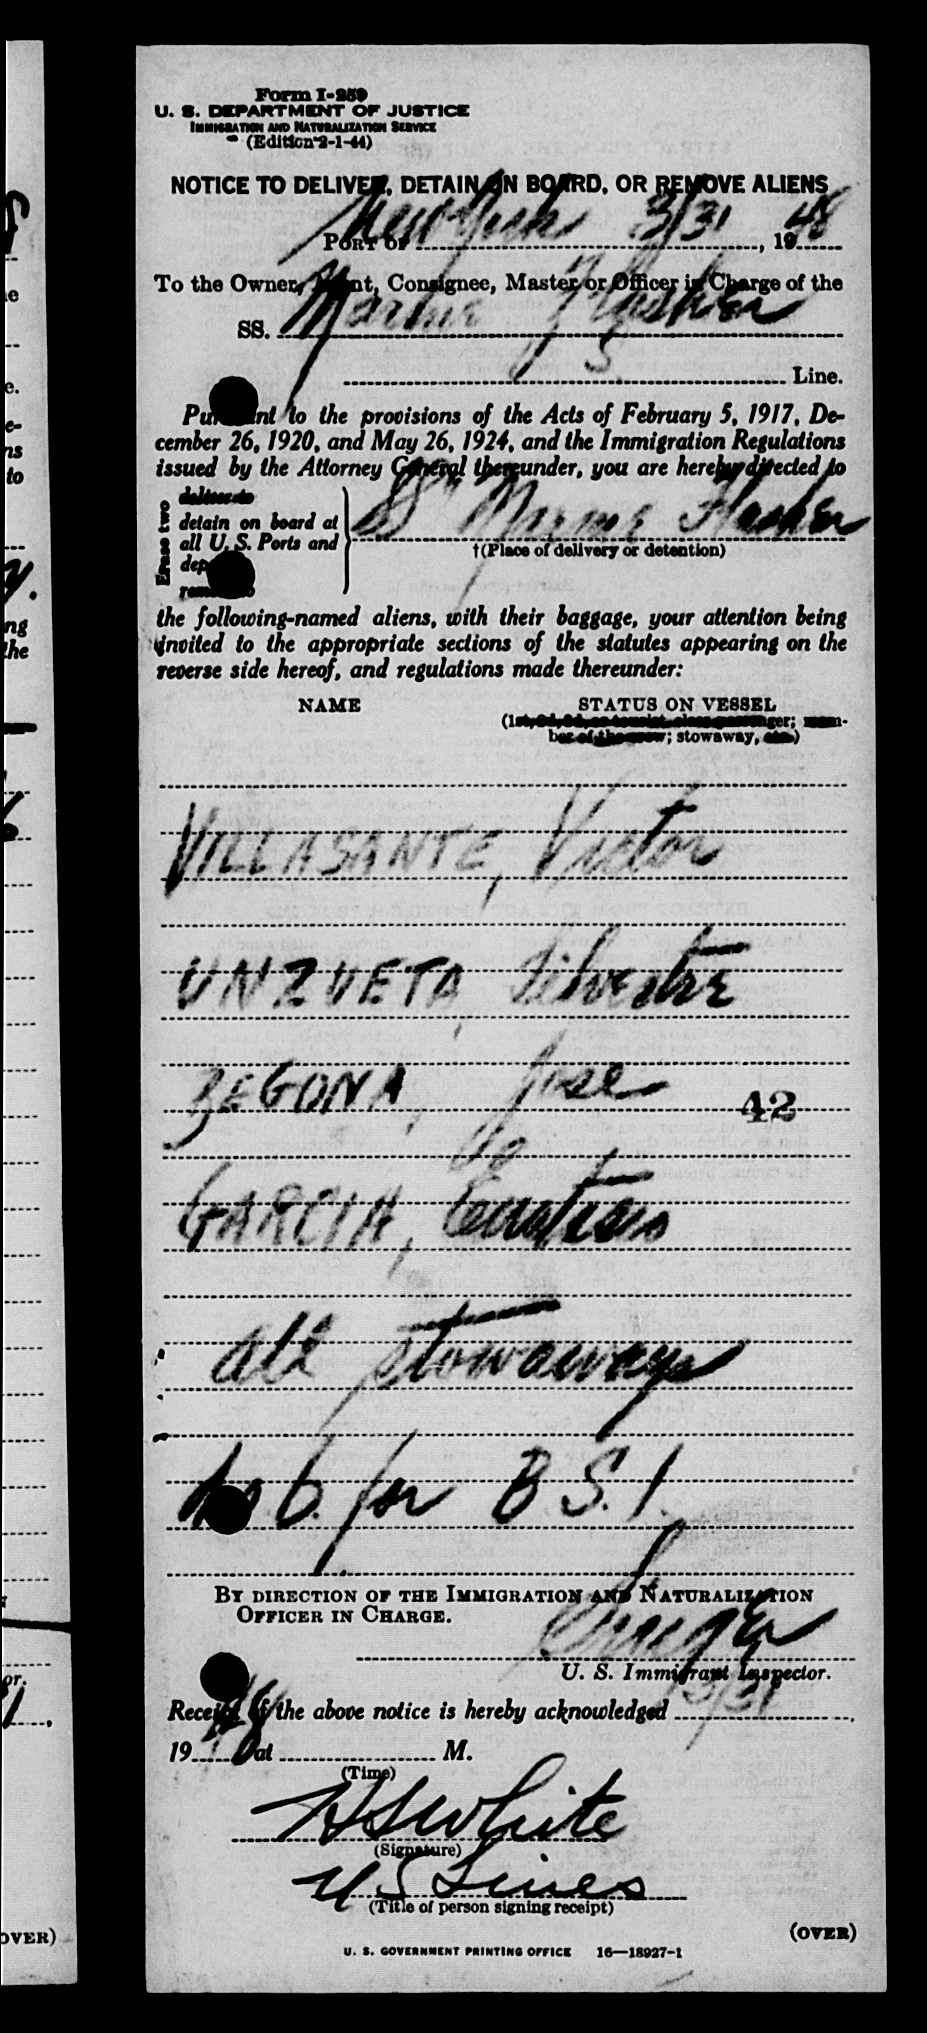 Form I-259
U. S. DEPARTMENT OF JUSTICE
IMMIGRATION AND NATURALIZATION SERVICE
(Edition 2-1-44)
NOTICE TO DELIVER, DETAIN ON BOARD, OR REMOVE ALIENS
PORT OF New York 3/31, 1948
To the Owner, Agent, Consignee, Master or Officer in Charge of the
SS. Marine Flasher
Line.
Pursuant to the provisions of the Acts of February 5, 1917, De-
cember 26, 1920, and May 26, 1924, and the Immigration Regulations
issued by the Attorney General thereunder, you are hereby directed to
Erase two
deliver to
detain on board at
all U. S. Ports and
SS Marine Flasher
†(Place of delivery or detention)
remove to
the following-named aliens, with their baggage, your attention being
invited to the appropriate sections of the statutes appearing on the
reverse side hereof, and regulations made thereunder:
NAME STATUS ON VESSEL
(1st, 2d, 3d, or tourist class passenger; mem-
ber of the crew; stowaway, etc.)
VILLASANTE, Victor
UNZUETA, Silvestre
BEGONA, Jose
42
GARCIA,
all stowaways
for B.S.I.
BY DIRECTION OF THE IMMIGRATION AND NATURALIZATION
OFFICER IN CHARGE.
U. S. Immigrant Inspector.
Receipt of the above notice is hereby acknowledged 3/31,
19 48 at M.
(Time)
HS White
(Signature)
US Lines
(Title of person signing receipt)
(OVER)
U. S. GOVERNMENT PRINTING OFFICE 16—18927-1
(OVER)